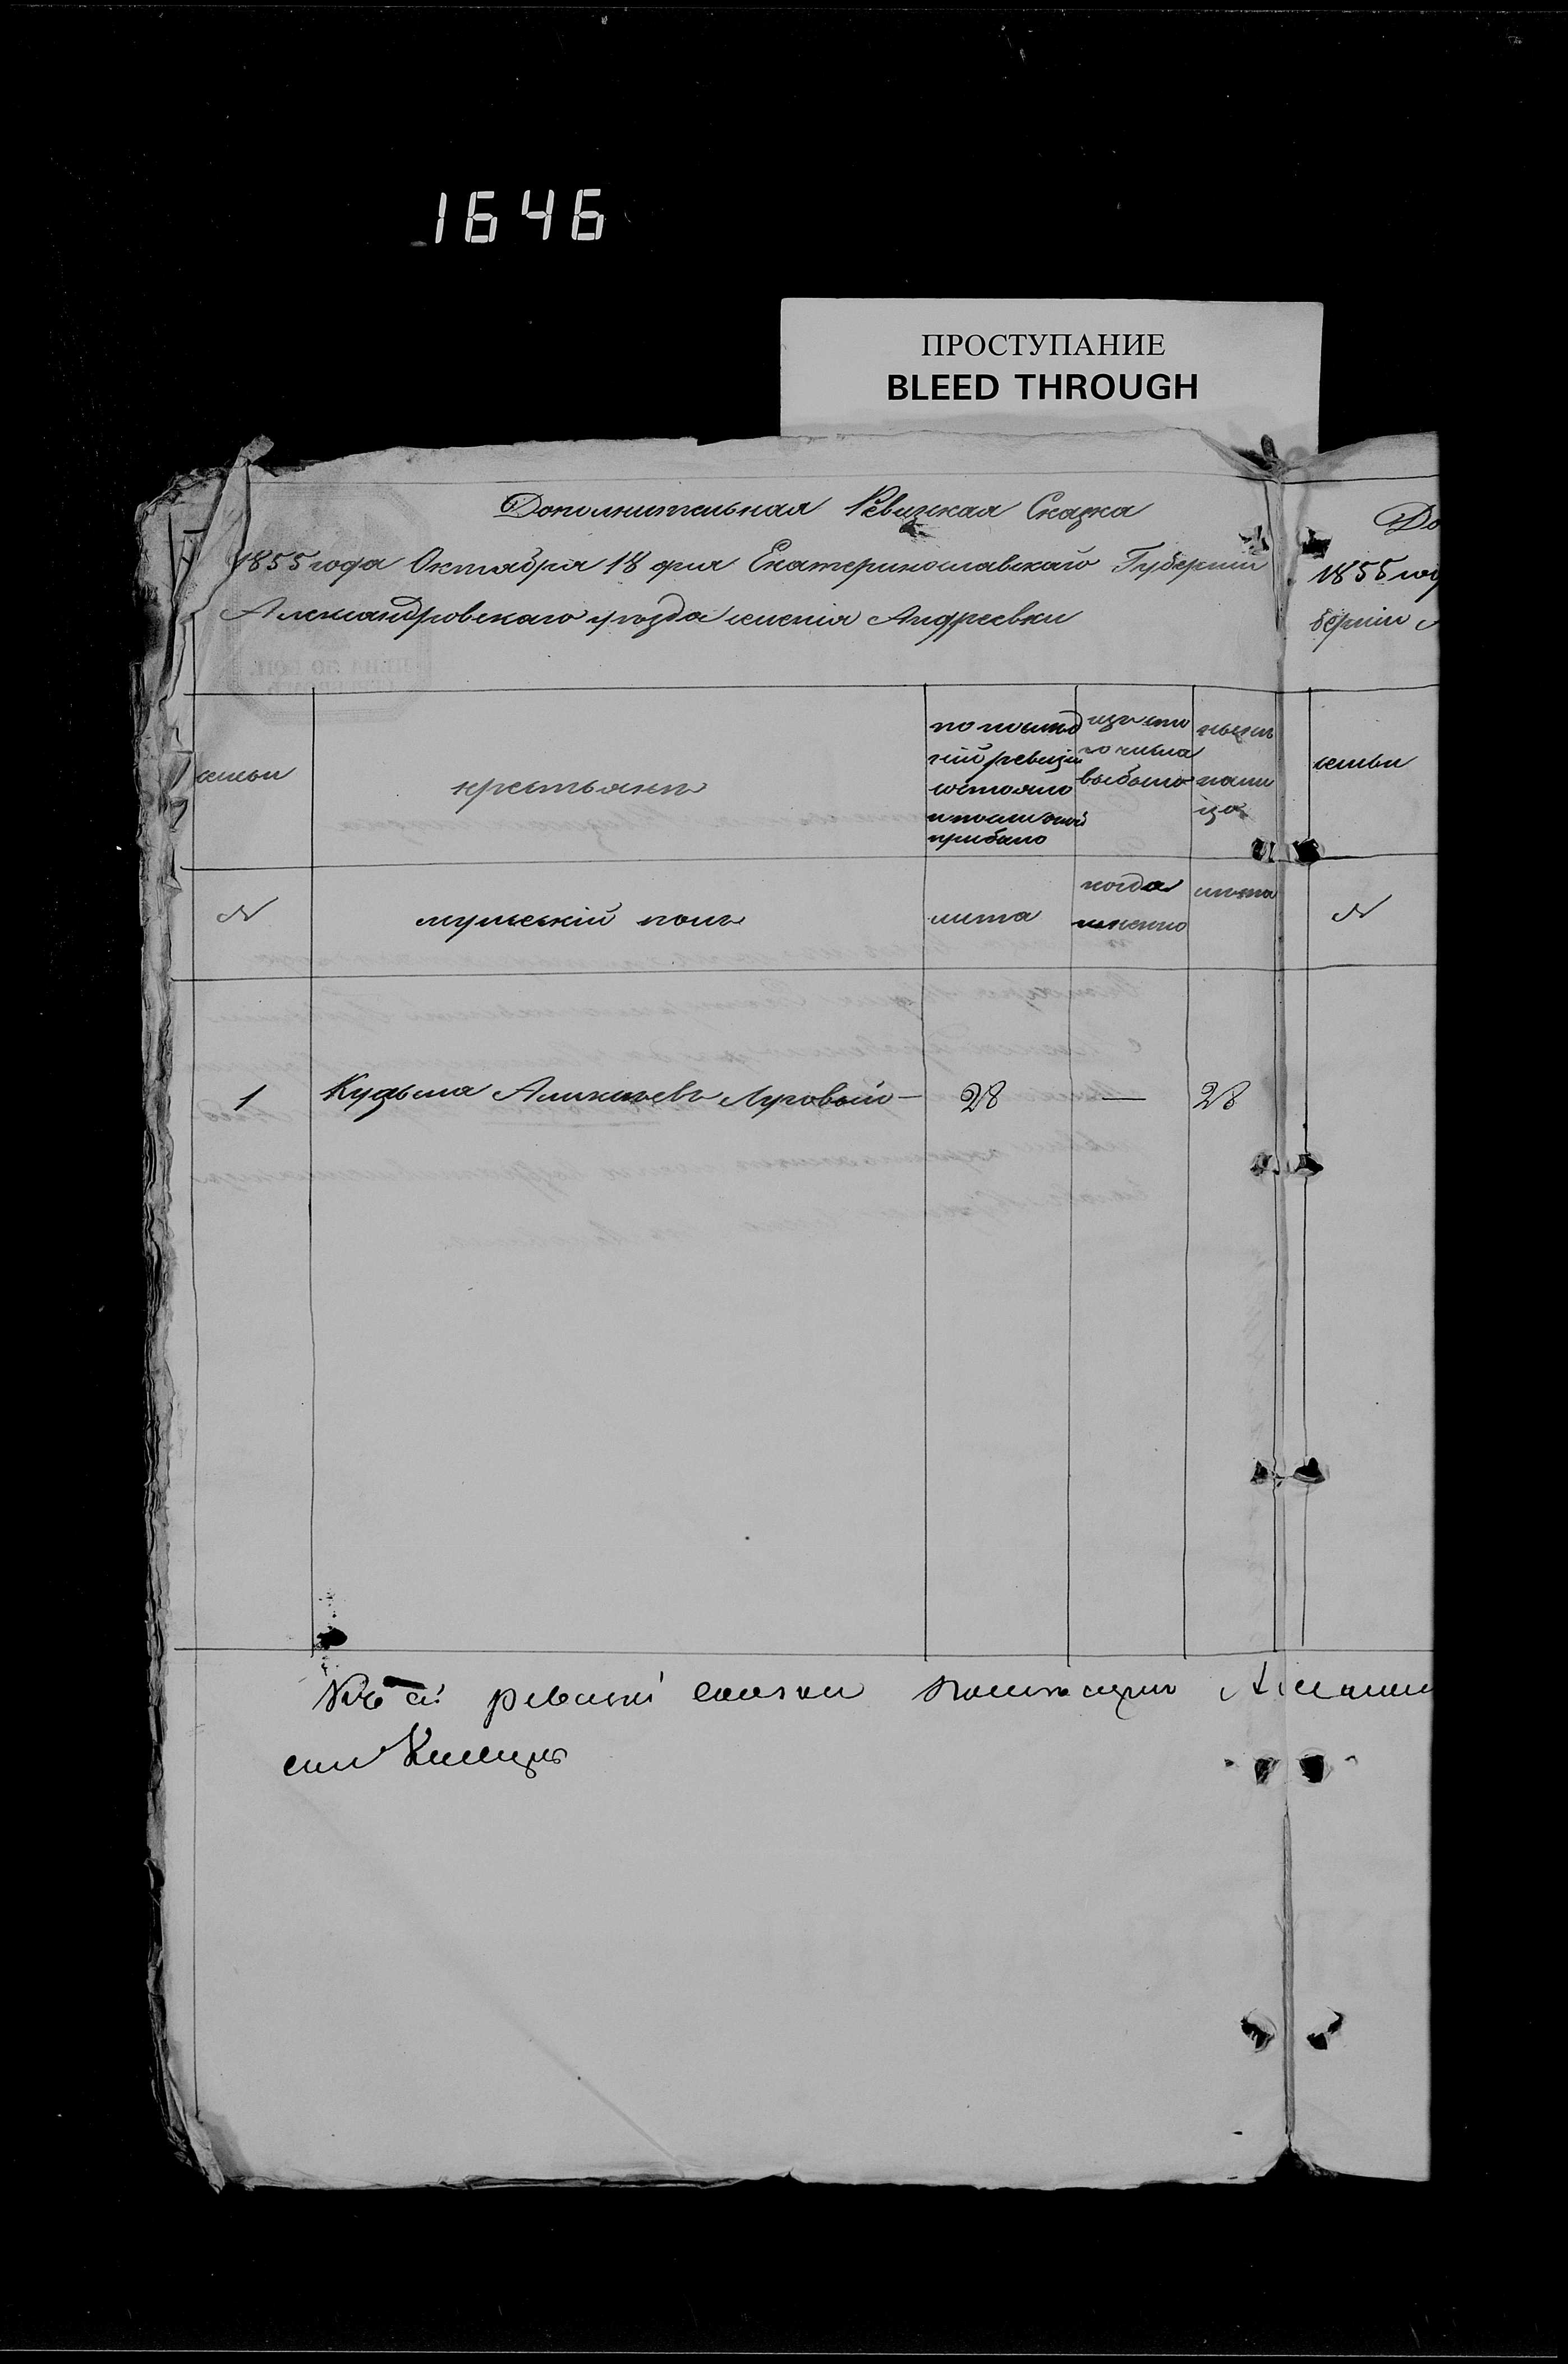 1646
ПРОСТУПАНИЕ
BLEED THROUGH
Дополнительная Ревизкая Сказка
1855 года Октября 18 дня Екатеринославскаго Губерніи
Александровскаго уѣзда имѣнія Андреевки
семьи
крестьянъ
по послѣд
ній ревизіи
состояло
и послѣ оной
прибыло
изъ то
го числа
выбыло
нынѣ
на ли
цо
№
мужескій полъ
лѣта
когда
именно
лѣта
1
Кузьма Алексѣевъ Луговый —
28
—
28
Къ сѣй ревизкі сказки
До
1855 год
берніи
семьи
№